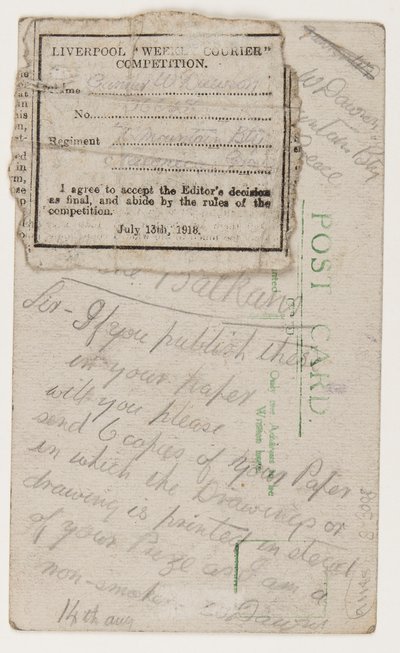 LIVERPOOL "WEEKLY COURIER"
COMPETITION.
Name Gunner W Dawson
No.
Regiment Mountain Bty
I agree to accept the Editor's decision
as final, and abide by the rules of the
competition.
July 13th, 1918.
W Dawson
Mountain Bty
POST CARD
Only the Address to be
Written here.
Balkans
Sir - If you publish this
in your paper
will you please
send 6 copies of your Paper
in which the Drawings or
drawing is printed in stead
of your Prize as I am a
non-smoker W Dawson
14th aug